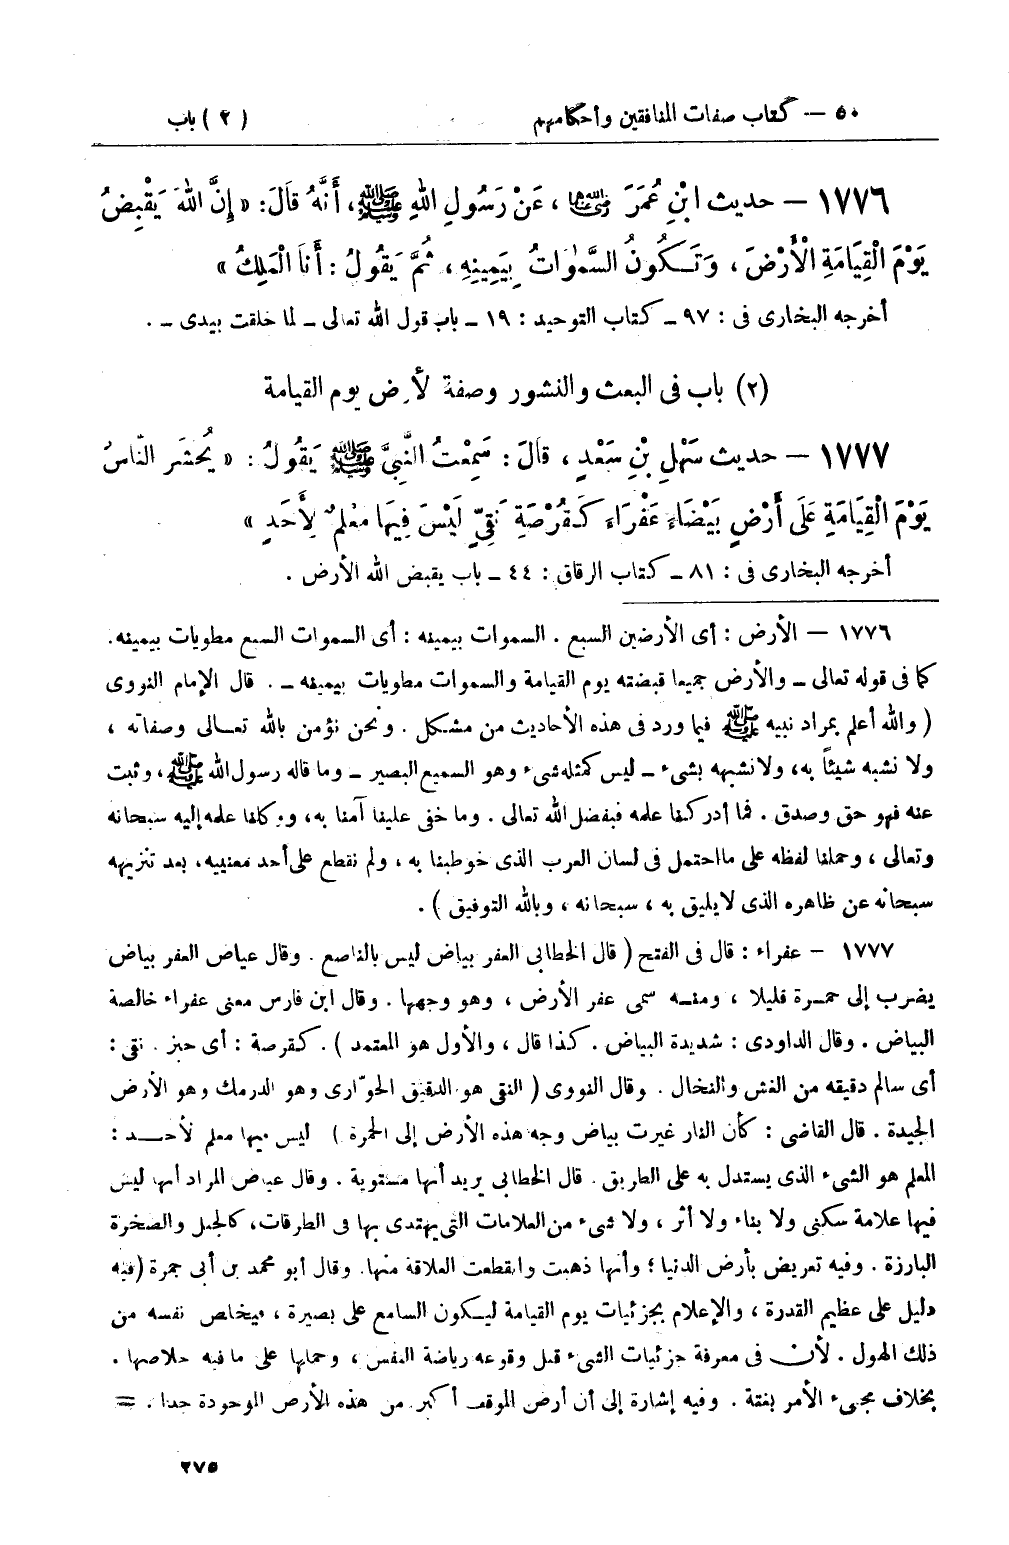 ٥٠ — كتاب صفات المنافقين وأحكامهم (٢) باب
١٧٧٦ — حديث ابْنِ عُمَرَ رضي الله عنهما، عَنْ رَسُولِ اللهِ ﷺ، أَنَّهُ قَالَ: «إِنَّ اللهَ يَقْبِضُ
يَوْمَ الْقِيَامَةِ الْأَرْضَ، وَتَكُونُ السَّمٰوَاتُ بِيَمِينِهِ، ثُمَّ يَقُولُ: أَنَا الْمَلِكُ»
أخرجه البخارى فى: ٩٧ ـ كتاب التوحيد: ١٩ ـ باب قول الله تعالى ـ لما خلقت بيدى ـ .
(٢) باب فى البعث والنشور وصفة لأرض يوم القيامة
١٧٧٧ — حديث سَهْلِ بْنِ سَعْدٍ، قَالَ: سَمِعْتُ النَّبِيَّ ﷺ يَقُولُ: «يُحْشَرُ النَّاسُ
يَوْمَ الْقِيَامَةِ عَلَى أَرْضٍ بَيْضَاءَ عَفْرَاءَ كَقُرْصَةِ نَقِيٍّ لَيْسَ فِيهَا مَعْلَمٌ لِأَحَدٍ»
أخرجه البخارى فى: ٨١ ـ كتاب الرقاق: ٤٤ ـ باب يقبض الله الأرض .
١٧٧٦ — الأرض: أى الأرضين السبع . السموات بيمينه: أى السموات السبع مطويات بيمينه.
كما فى قوله تعالى ـ والأرض جميعا قبضته يوم القيامة والسموات مطويات بيمينه ـ . قال الإمام النووى
(والله أعلم بمراد نبيه ﷺ فيما ورد فى هذه الأحاديث من مشكل . ونحن نؤمن بالله تعالى وصفاته ،
ولا نشبه شيئاً به، ولا نشبهه بشىء ـ ليس كمثله شىء وهو السميع البصير ـ وما قاله رسول الله ﷺ، وثبت
عنه فهو حق وصدق . فما أدركنا علمه فبفضل الله تعالى . وما خفى علينا آمنا به، ووكلنا علمه إليه سبحانه
وتعالى، وحملنا لفظه على ما احتمل فى لسان العرب الذى خوطبنا به، ولم نقطع على أحد معنييه، بعد تنزيهه
سبحانه عن ظاهره الذى لا يليق به، سبحانه، وبالله التوفيق) .
١٧٧٧ — عفراء: قال فى الفتح (قال الخطابى العفر بياض ليس بالناصع . وقال عياض العفر بياض
يضرب إلى حمرة قليلا، ومنه سمى عفر الأرض، وهو وجهها . وقال ابن فارس معنى عفراء خالصة
البياض . وقال الداودى: شديدة البياض . كذا قال، والأول هو المعتمد) . كقرصة: أى خبز . نقى:
أى سالم دقيقه من الغش والنخال . وقال النووى (النقى هو الدقيق الحوّارى وهو الدرمك وهو الأرض
الجيدة . قال القاضى: كأن النار غيرت بياض وجه هذه الأرض إلى الحمرة) ليس فيها معلم لأحد:
المعلم هو الشىء الذى يستدل به على الطريق . قال الخطابى يريد أنها مستوية . وقال عياض المراد أنها ليس
فيها علامة سكنى ولا بناء ولا أثر، ولا شىء من العلامات التى يهتدى بها فى الطرقات، كالجبل والصخرة
البارزة . وفيه تعريض بأرض الدنيا؛ وأنها ذهبت وانقطعت العلاقة منها. وقال أبو محمد بن أبى جمرة (فيه
دليل على عظيم القدرة، والإعلام بجزئيات يوم القيامة ليكون السامع على بصيرة، فيخلص نفسه من
ذلك الهول . لأن فى معرفة جزئيات الشىء قبل وقوعه رياضة النفس، وحملها على ما فيه خلاصها .
بخلاف مجىء الأمر بغتة . وفيه إشارة إلى أن أرض الموقف أكبر من هذه الأرض الموجودة جدا . =
٢٧٥